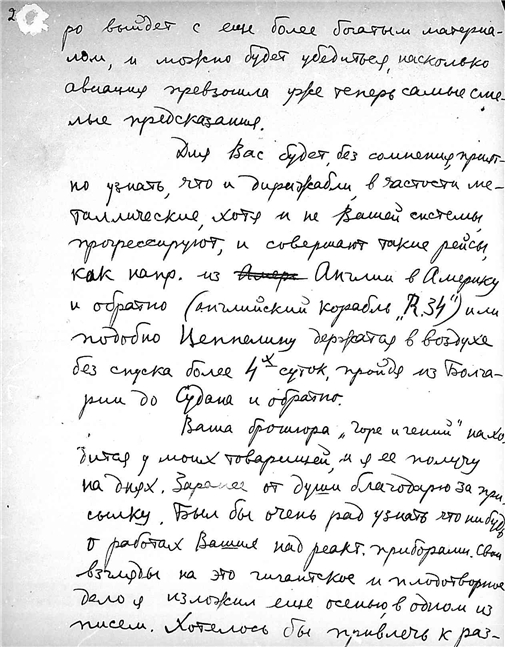 2
ро выйдет с еще более богатым материа-
лом, и можно будет убедиться, насколько
авиация превзошла уже теперь самые сме-
лые предсказания.
Для Вас будет, без сомнения, прият-
но узнать, что и дирижабли, в частости ме-
таллические, хотя и не Вашей системы,
прогрессируют, и совершают такие рейсы,
как напр. из Англии в Америку
и обратно (английский корабль „R.34") или
подобно Цеппелину держатся в воздухе
без спуска более 4х суток, пройдя из Болга-
рии до Судана и обратно.
Ваша брошюра „горе и гений" нахо-
дится у моих товарищей, и я ее получу
на днях. Заранее от души благодарю за при-
сылку. Был бы очень рад узнать что нибудь
о работах Ваших над реакт. приборами. Свои
взгляды на это гигантское и плодотворное
дело я изложил еще осенью, в одном из
писем. Хотелось бы привлечь к раз-